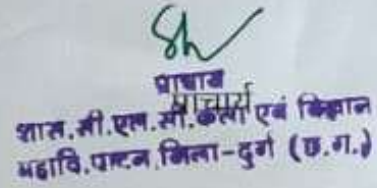 प्राचार्य
प्राचार्य
शास.सी.एल.सी.कला एवं विज्ञान
महावि.पाटन जिला-दुर्ग (छ.ग.)